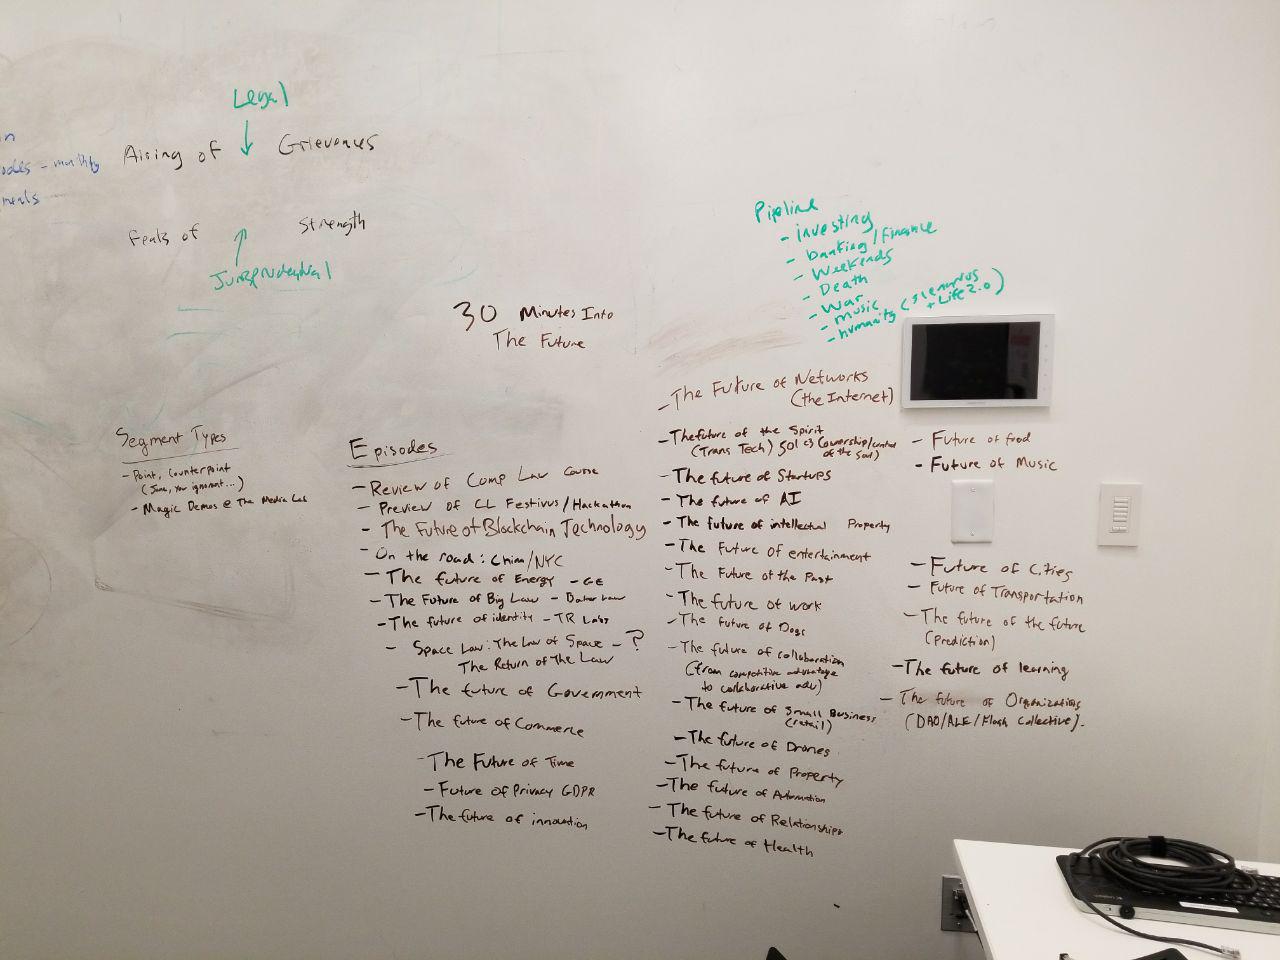 Legal
Airing of Grievances
- monthly
Feats of Strength
Jurisprudential
Pipeline
- investing
- banking/Finance
- Weekends
- Death
- War
- music
- humanity (scenarios
+ Life 2.0)
30 Minutes Into
The Future
Segment Types
- Point, Counterpoint
(Jane, you ignorant...)
- Magic Demos @ The Media Lab
Episodes
- Review of Comp Law Course
- Preview of CL Festivus/Hackathon
- The Future of Blockchain Technology
- On the road: China/NYC
- The future of Energy - GE
- The Future of Big Law - Baker Law
- The future of identity - TR Labs
- Space Law: The Law of Space - ?
The Return of The Law
- The future of Government
- The future of Commerce
- The Future of Time
- Future of Privacy GDPR
- The future of innovation
- The Future of Networks
(the Internet)
- The future of the Spirit
(Trans Tech) (ownership/control
of the soul)
- The future of Startups
- The future of AI
- The future of intellectual Property
- The Future of entertainment
- The Future of the Past
- The future of work
- The future of Dogs
- The future of collaboration
(from competitive advantage
to collaborative adv)
- The future of Small Business
(retail)
- The future of Drones
- The future of Property
- The future of Automation
- The future of Relationships
- The future of Health
- Future of food
- Future of Music
- Future of Cities
- Future of Transportation
- The future of the future
(Prediction)
- The future of learning
- The future of Organizations
(DAO/ALE/Flash Collective).